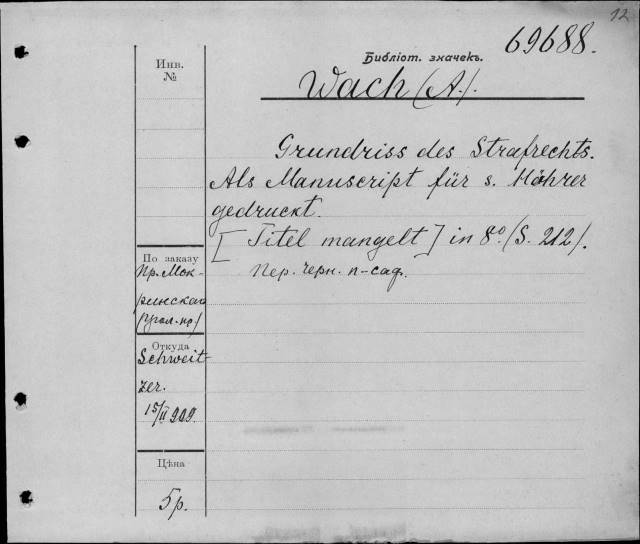 12
69688.
Библіот. значекъ.
Wach (A.).
Инв.
№
Grundriss des Strafrechts.
Als Manuscript für s. Höhrer
gedruckt.
[Titel mangelt] in 8º (S. 212).
Пер. черн. п-саф.
По заказу
Пр. Мок-
ринскаго
(Угол. пр.)
Откуда
Schweit-
zer.
15/II 909.
Цѣна
5 р.